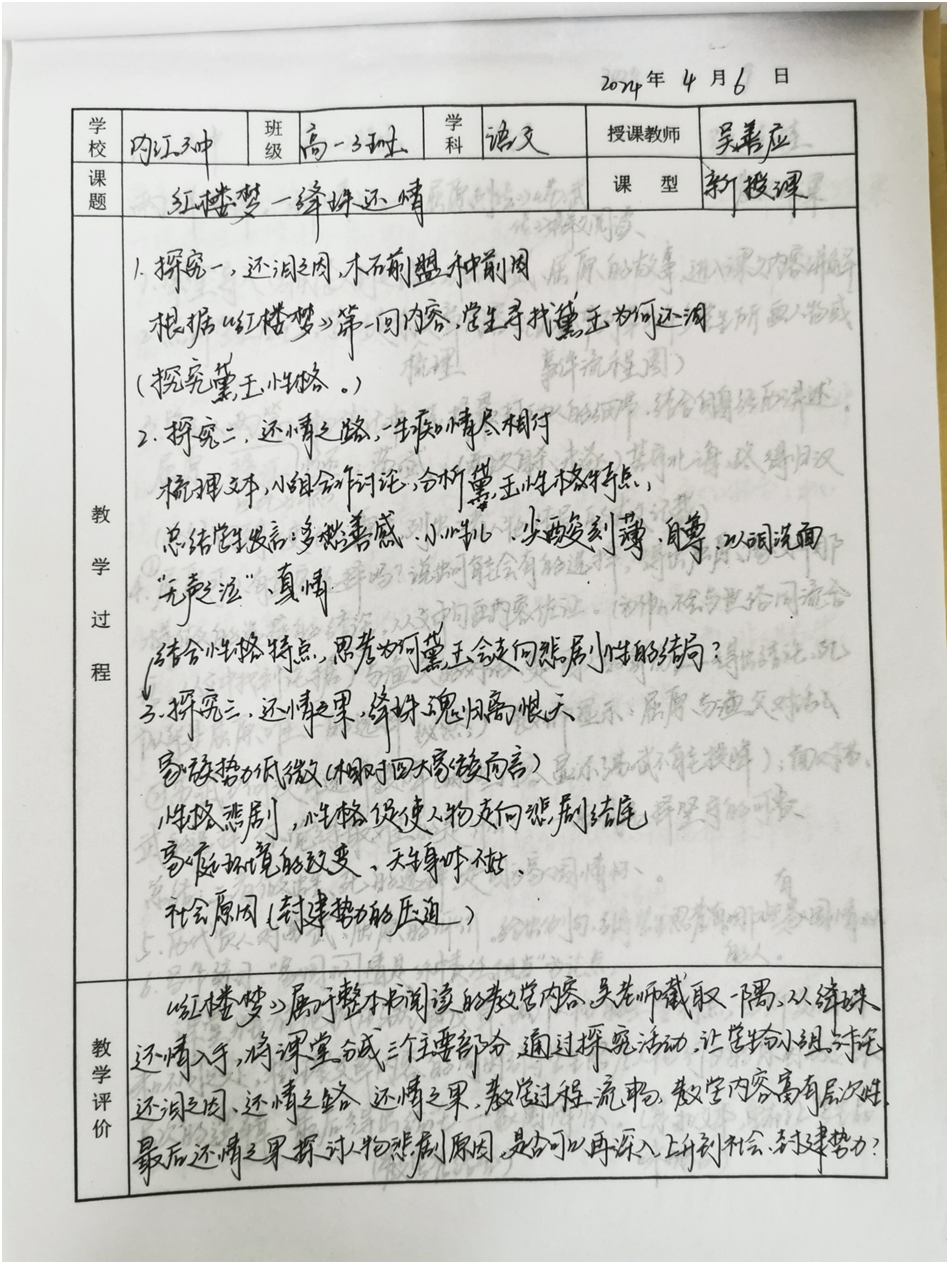 2024年4月6日
学校 内江三中 班级 高一3班 学科 语文 授课教师 吴善应
课题 红楼梦—绛珠还情 课型 新授课
教学过程
1. 探究一，还泪之因，木石前盟种前因
根据《红楼梦》第一回内容，学生寻找黛玉为何还泪
（探究黛玉性格。）
2. 探究二，还情之路，一生痴情尽相付
梳理文本，小组合作讨论，分析黛玉性格特点，
总结学生发言：多愁善感、小性儿、尖酸刻薄、自尊、以泪洗面
“无声之泣”、真情
结合性格特点，思考为何黛玉会走向悲剧性的结局？
3. 探究三，还情之果，绛珠魂归离恨天
家族势力低微（相对四大家族而言）
性格悲剧，性格促使人物走向悲剧结尾
家庭环境的改变、天生身体不好、
社会原因（封建势力的压迫）
教学评价
《红楼梦》属于整本书阅读的教学内容，吴老师截取一隅，从绛珠
还情入手，将课堂分成三个主要部分，通过探究活动，让学生分小组讨论
还泪之因、还情之路、还情之果，教学过程流畅，教学内容富有层次性，
最后还情之果探讨人物悲剧原因，是否可以再深入上升到社会、封建势力？